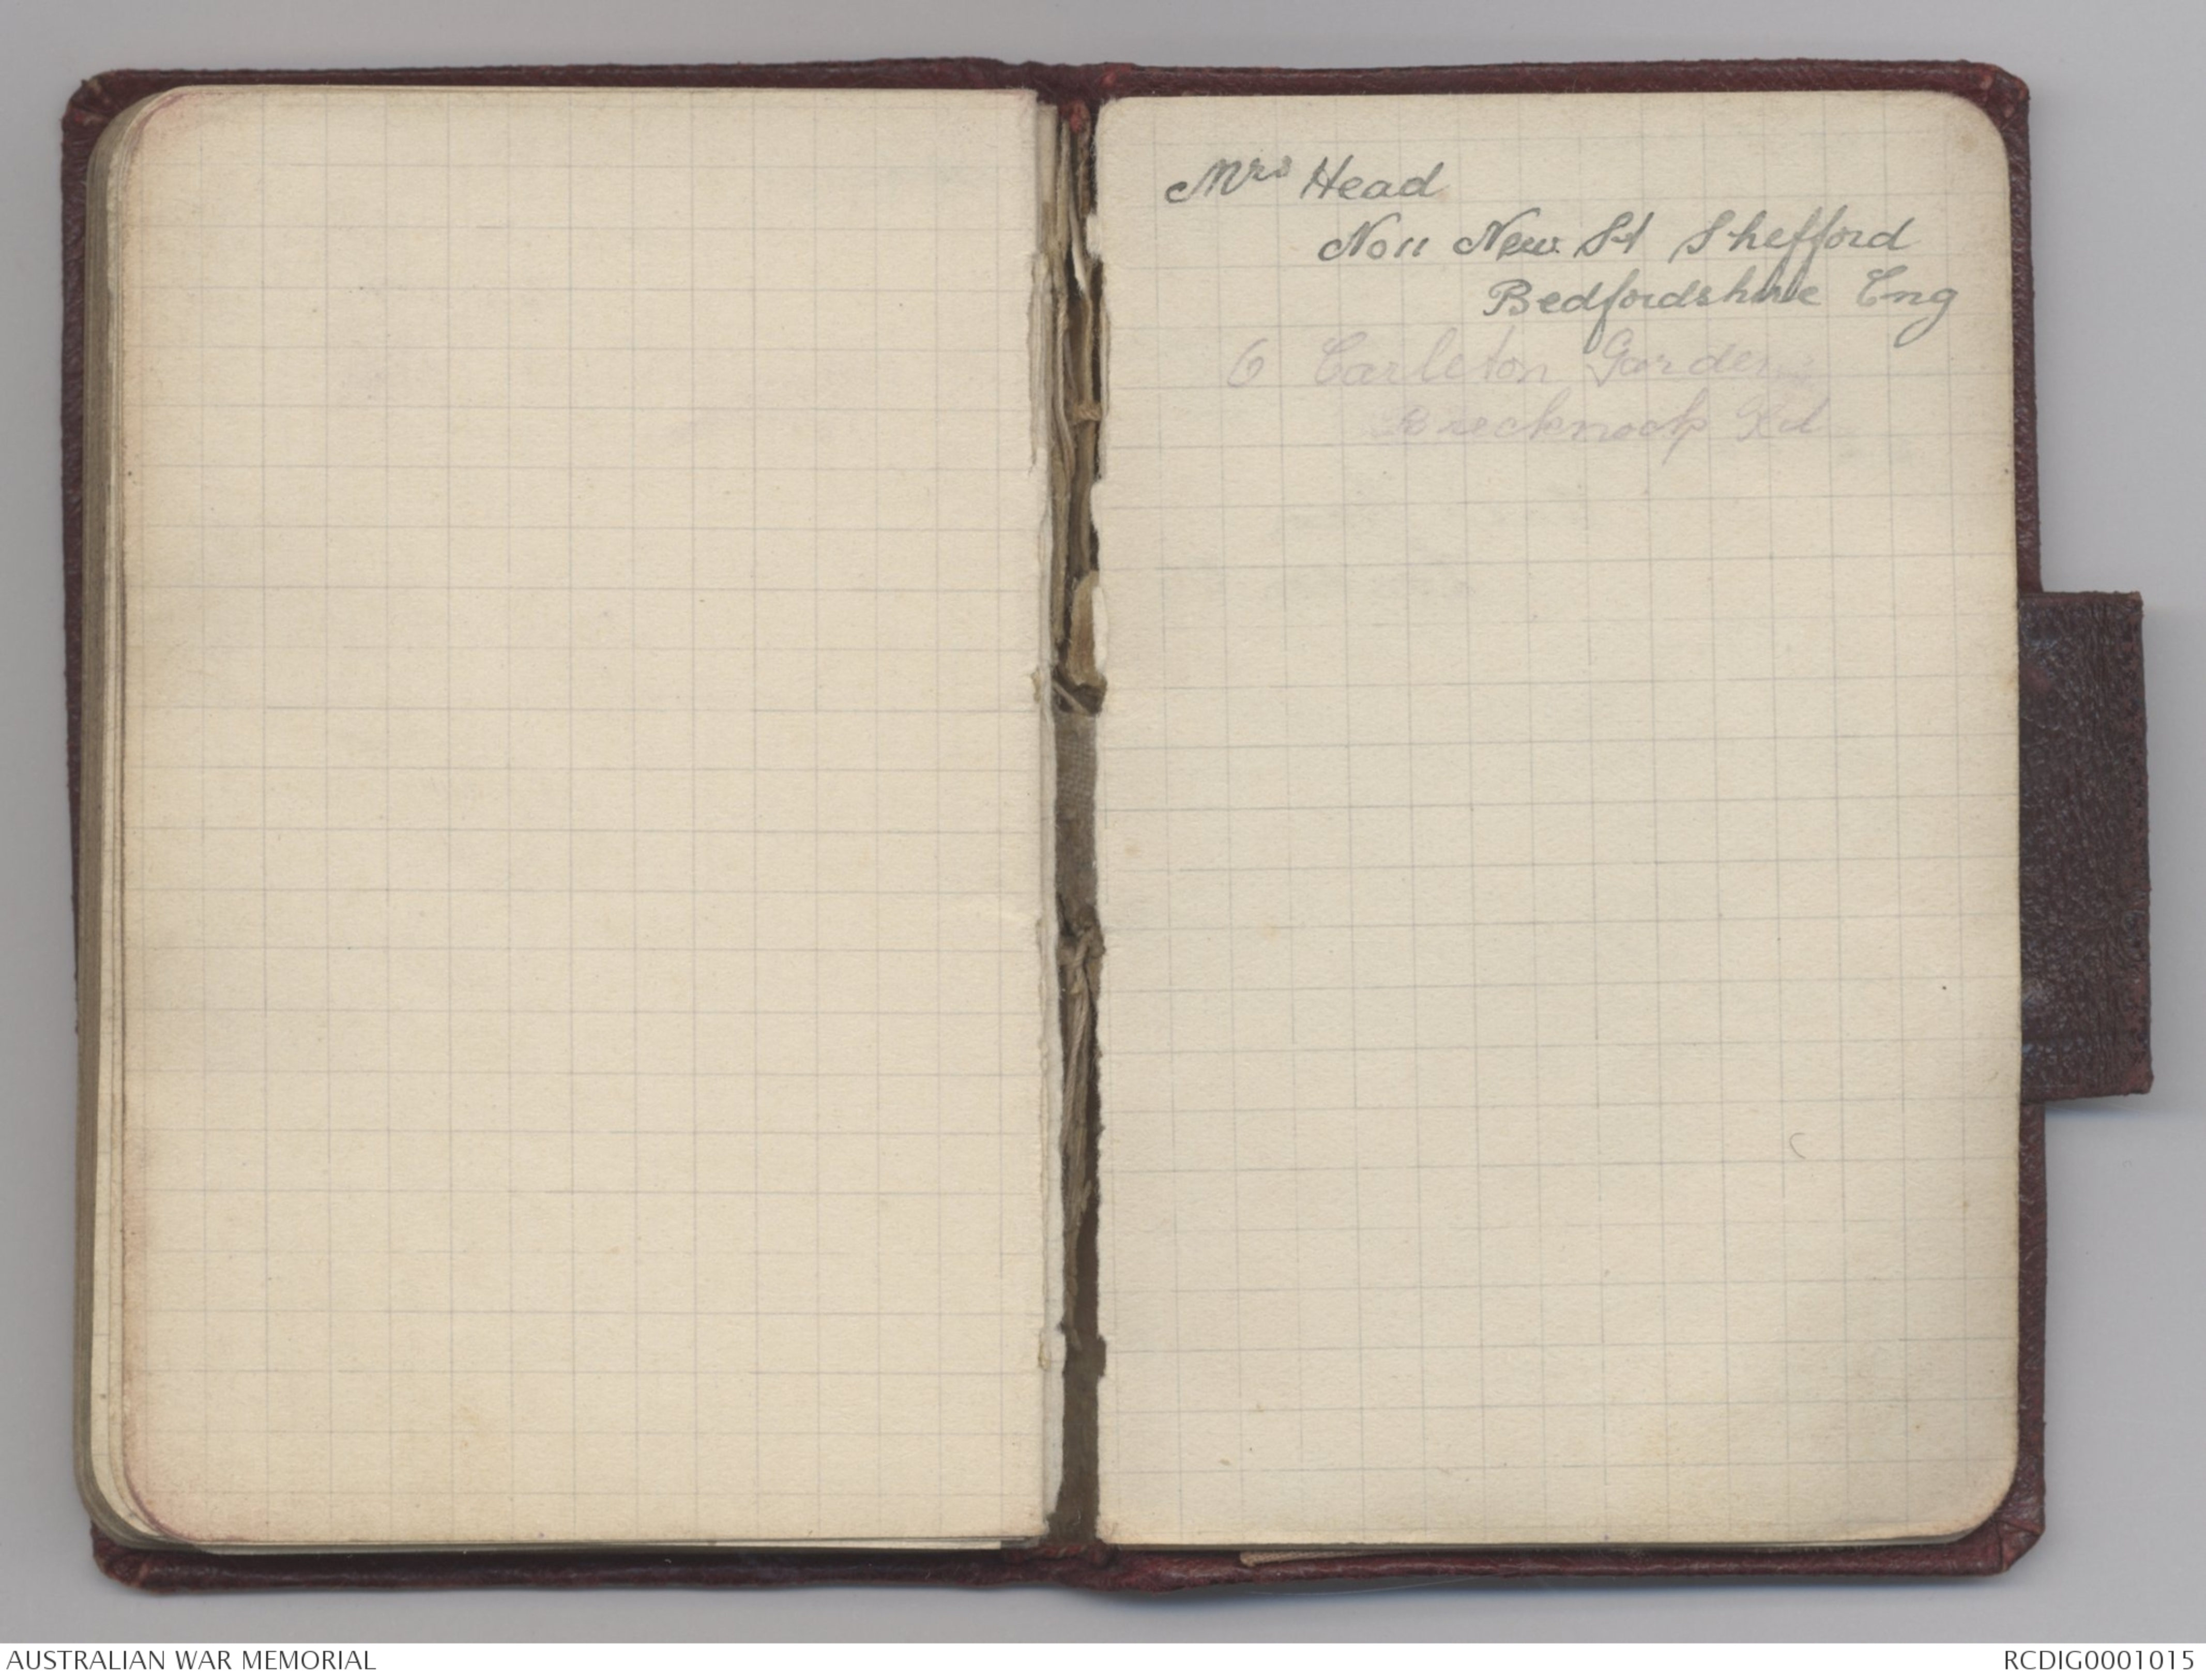 Mrs Head
No 11 New St Shefford
Bedfordshire Eng
6 Carleton Gardens
Brecknock Rd
AUSTRALIAN WAR MEMORIAL
RCDIG0001015